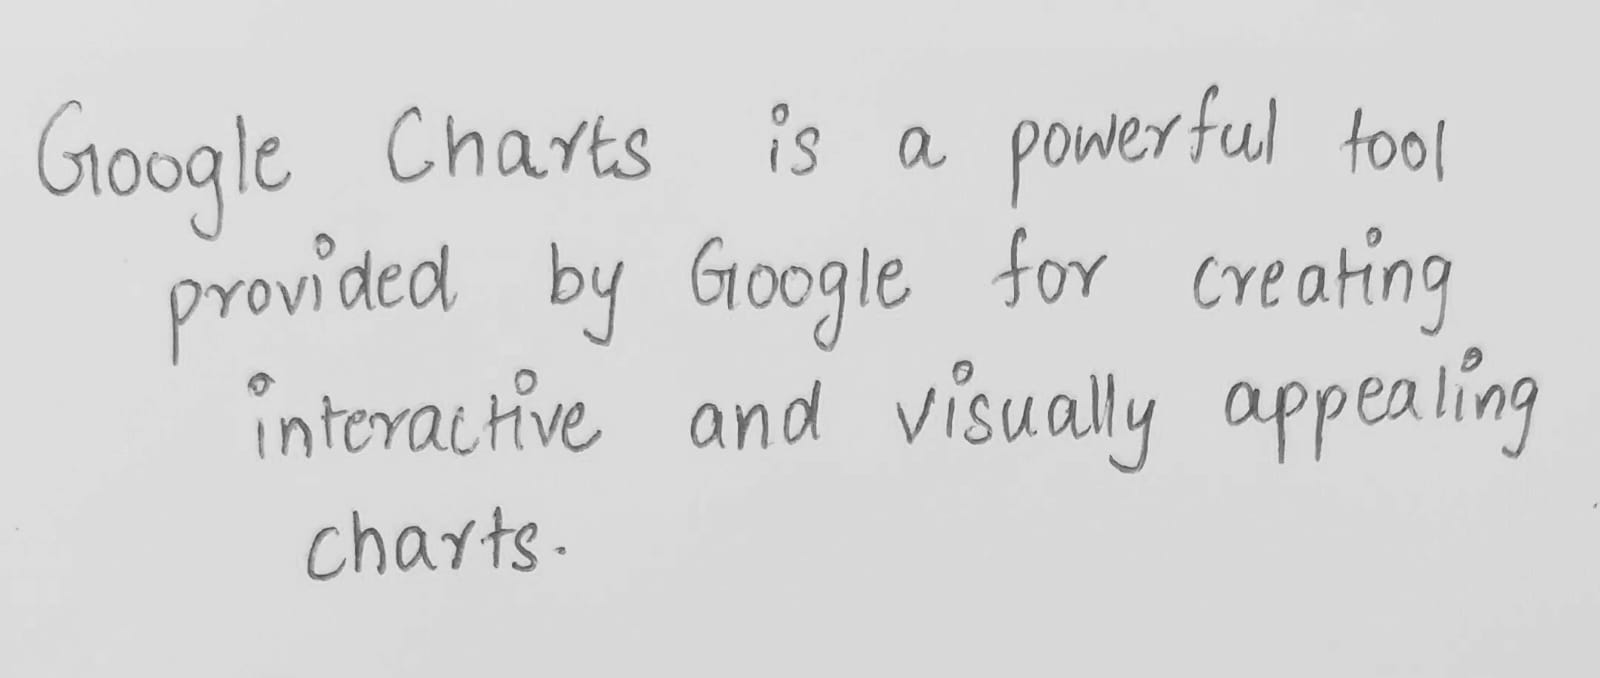 Google Charts is a powerful tool
provided by Google for creating
interactive and visually appealing
charts.